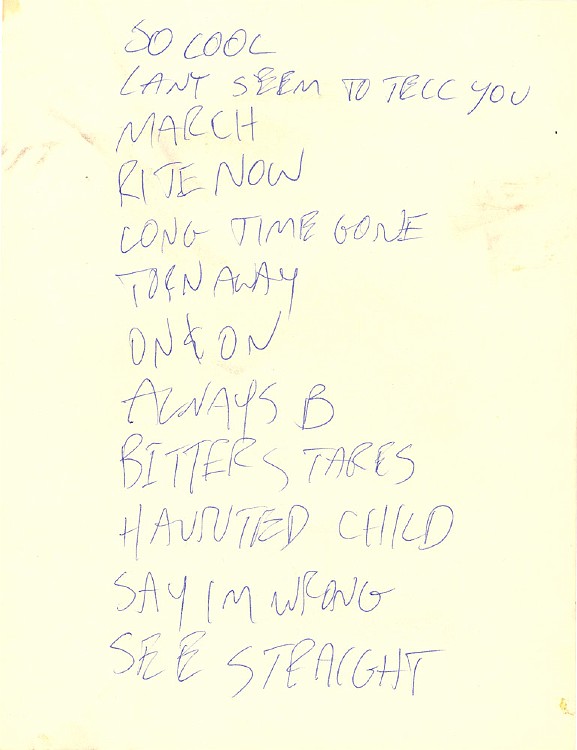 SO COOL
CANT SEEM TO TELL YOU
MARCH
RITE NOW
LONG TIME GONE
TORN AWAY
ON & ON
ALWAYS B
BITTERSTARES
HAUNTED CHILD
SAY IM WRONG
SEE STRAIGHT